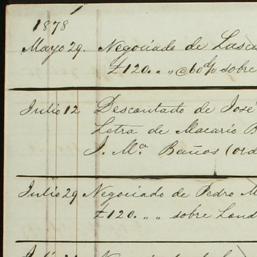 1878
Mayo 29. Negociado de Lasca
£120. „ „ @ 60 d/ sobre
Julio 12 Descontado de José
Letra de Macario B
J. Mª Baños (ord
Julio 29 Negociado de Pedro M
£120. „ „ sobre Lond